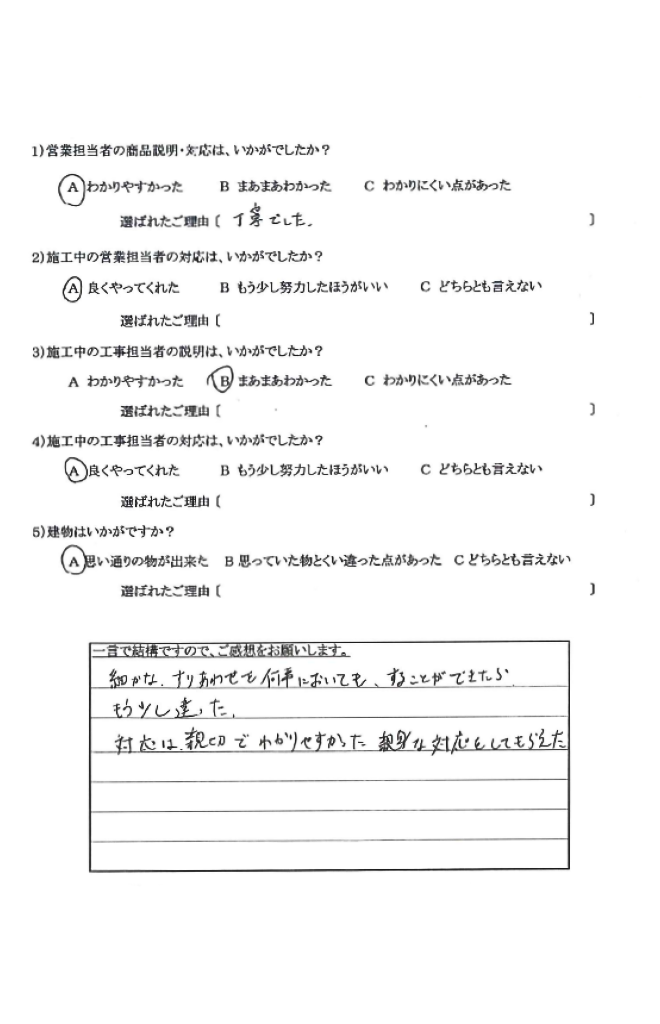 1)営業担当者の商品説明・対応は、いかがでしたか？
A わかりやすかった B まあまあわかった C わかりにくい点があった
選ばれたご理由〔 丁寧でした。 〕
2)施工中の営業担当者の対応は、いかがでしたか？
A 良くやってくれた B もう少し努力したほうがいい C どちらとも言えない
選ばれたご理由〔 〕
3)施工中の工事担当者の説明は、いかがでしたか？
A わかりやすかった B まあまあわかった C わかりにくい点があった
選ばれたご理由〔 〕
4)施工中の工事担当者の対応は、いかがでしたか？
A 良くやってくれた B もう少し努力したほうがいい C どちらとも言えない
選ばれたご理由〔 〕
5)建物はいかがですか？
A 思い通りの物が出来た B 思っていた物とくい違った点があった C どちらとも言えない
選ばれたご理由〔 〕
一言で結構ですので、ご感想をお願いします。
細かな、すりあわせを何事においても、することができたら
もう少し違った。
対応は、親切でわかりやすかった 親身な対応をしてもらえた